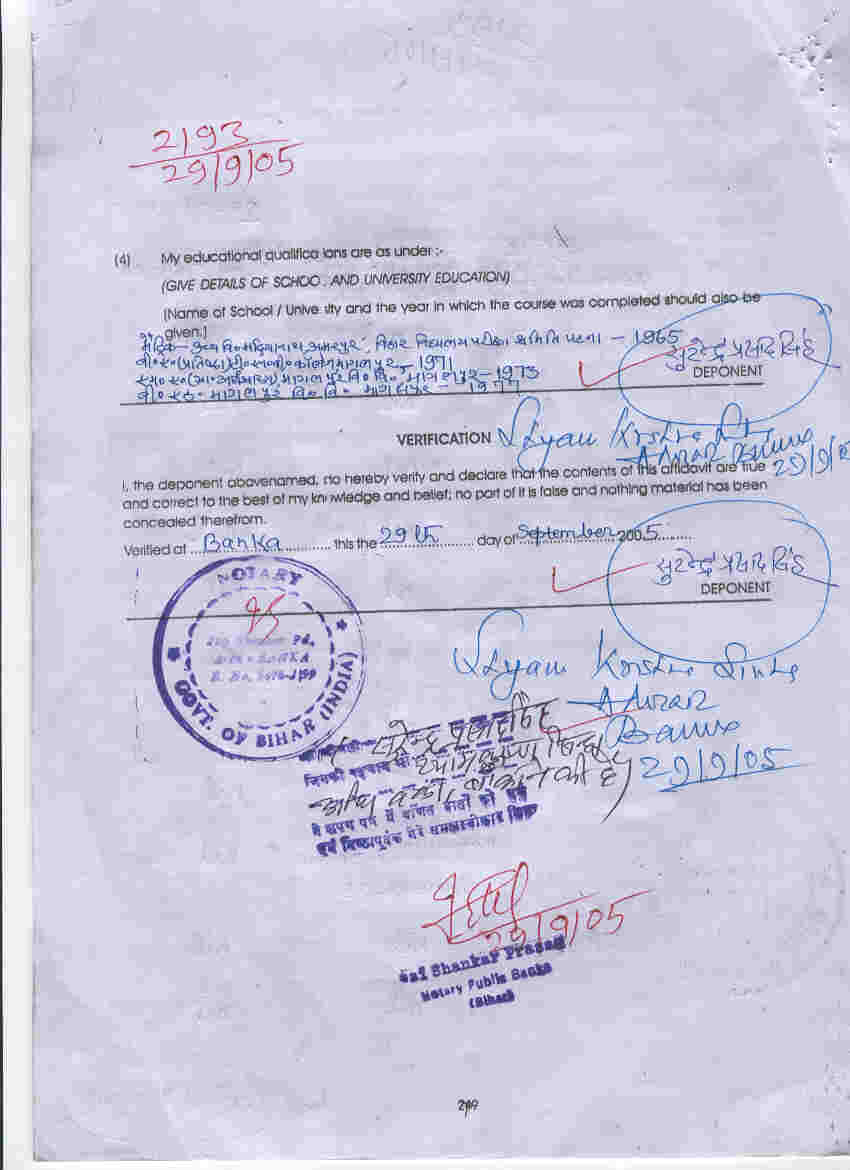 2193
29/9/05
(4) My educational qualifica ions are as under :-
(GIVE DETAILS OF SCHOO. AND UNIVERSITY EDUCATION)
(Name of School / Unive sity and the year in which the course was completed should also be
given.)
मैट्रिक - उच्च वि० अमरपुर, बिहार विद्यालय परीक्षा समिति पटना - 1965
बी० ए० (प्रतिष्ठा) टी० एन० बी० कॉलेज भागलपुर - 1971
एम० ए० भागलपुर वि० वि० भागलपुर - 1973
भागलपुर वि० वि० भागलपुर - 1977
सुरेन्द्र प्रसाद सिंह
DEPONENT
VERIFICATION
29/9/05
I, the deponent abovenamed, do hereby verify and declare that the contents of this affidavit are true
and correct to the best of my knowledge and belief; no part of it is false and nothing material has been
concealed therefrom.
Verified at ... Banka ............ this the 29th ............ day of September 2005..........
सुरेन्द्र प्रसाद सिंह
DEPONENT
NOTARY
GOVT. OF BIHAR (INDIA)
सुरेन्द्र प्रसाद सिंह
जिनकी पहचान श्री श्यामकृष्ण सिन्हा
बांका ने की है
ने शपथ पत्र में वर्णित बातों को
एवं निष्ठापूर्वक मेरे समक्ष स्वीकार किया
Banka
29/9/05
29/9/05
Jai Shankar Prasad
Notary Public Banka
(Bihar)